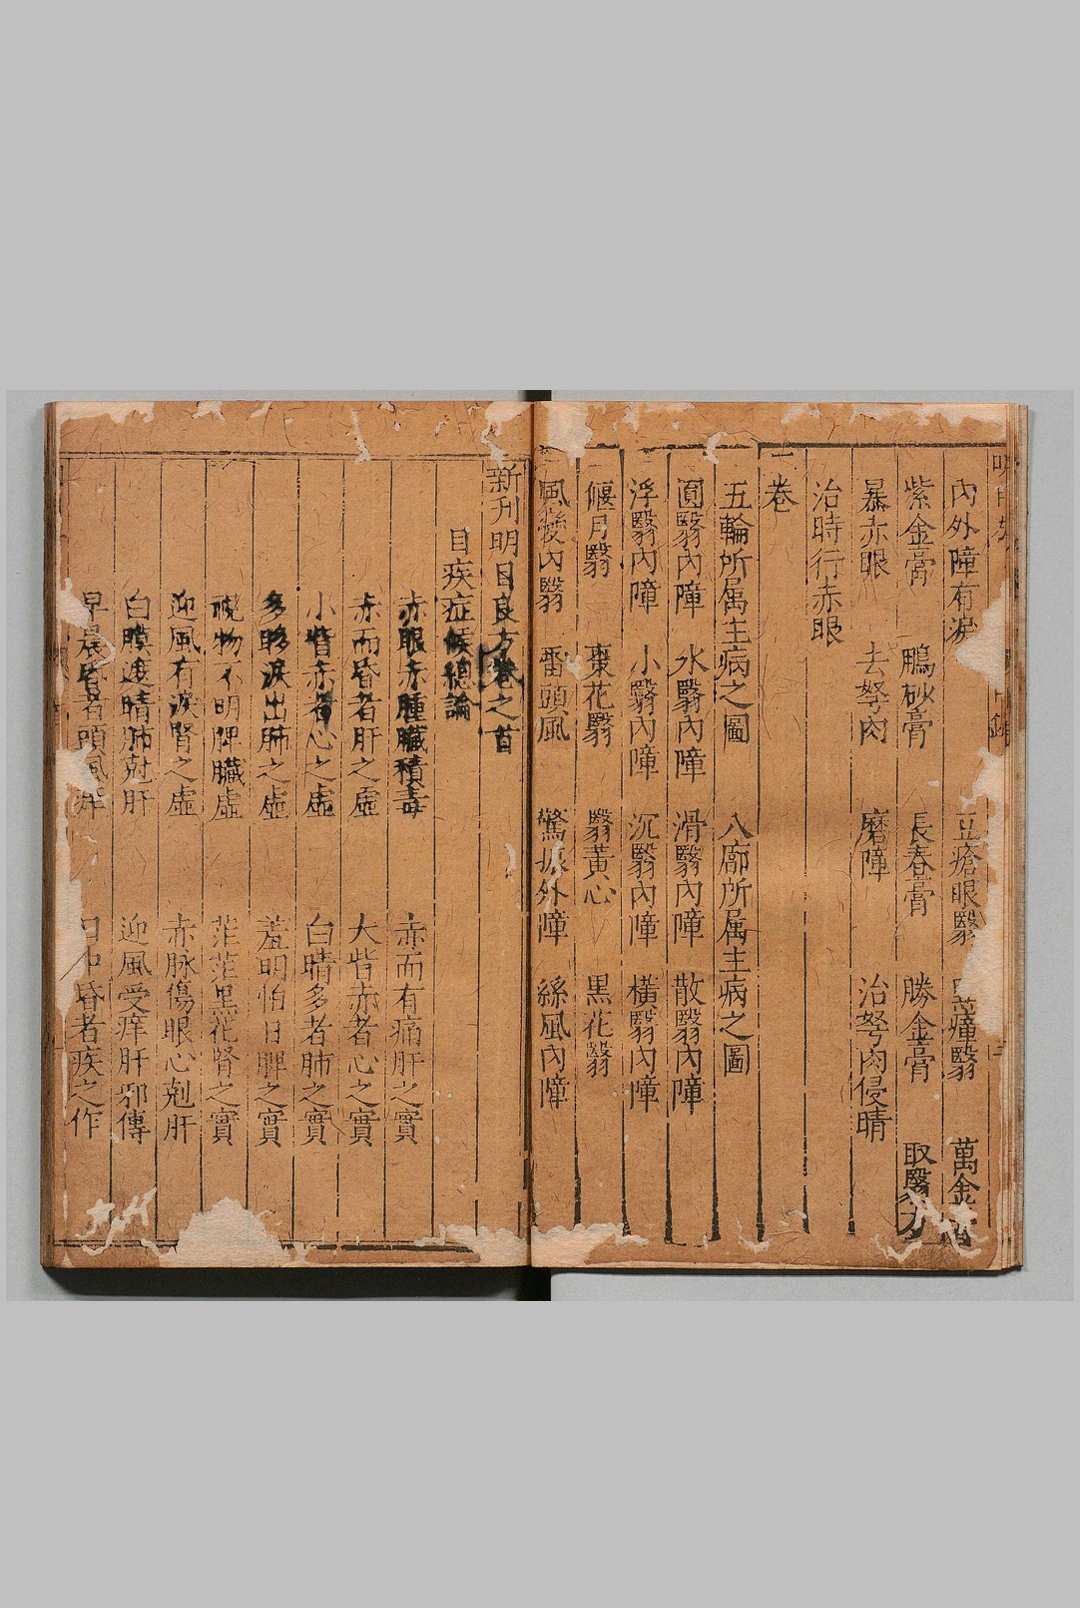 内外障有淚 豆瘡眼翳 瘴翳 萬金膏
紫金膏 鵬砂膏 長春膏 勝金膏 取翳
暴赤眼 去努肉 磨障 治努肉侵睛
治時行赤眼
二卷
五輪所属主病之圖 八廓所属主病之圖
圓翳內障 水翳內障 滑翳內障 散翳內障
浮翳內障 小翳內障 沉翳內障 橫翳內障
偃月翳 棗花翳 翳黃心 黒花翳
風變內翳 雷頭風 驚振外障 綠風內障
新刊明目良方卷之首
目疾症候總論
赤眼赤腫臟積毒 赤而有痛肝之實
赤而昏者肝之虛 大眥赤者心之實
小眥赤者心之虛 白睛多者肺之實
多眵淚出肺之虛 羞明怕日脾之實
視物不明脾臟虛 茫茫黒花腎之實
迎風有淚腎之虛 赤脉傷眼心剋肝
白膜遮睛肺剋肝 迎風受痒肝邪傳
早晨昏者頭風 日中昏者疾之作